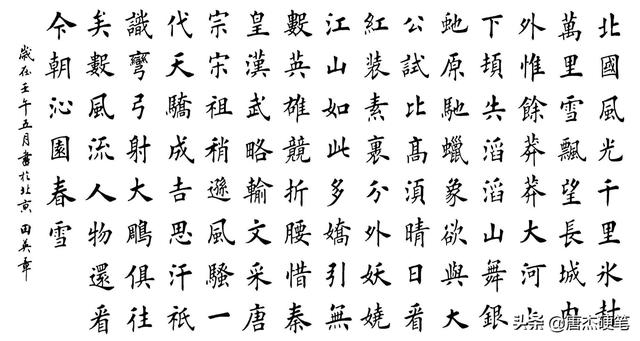 北國風光千里氷封
萬里雪飄望長城内
外惟餘莽莽大河上
下頓失滔滔山舞銀
虵原馳蠟象欲與天
公試比高須晴日看
紅装素裹分外妖嬈
江山如此多嬌引無
數英雄競折腰惜秦
皇漢武略輸文采唐
宗宋祖稍遜風騷一
代天驕成吉思汗衹
識彎弓射大鵰俱往
矣數風流人物還看
今朝沁園春雪
歲在壬午五月書於北京 田英章
头条 @唐杰硬笔